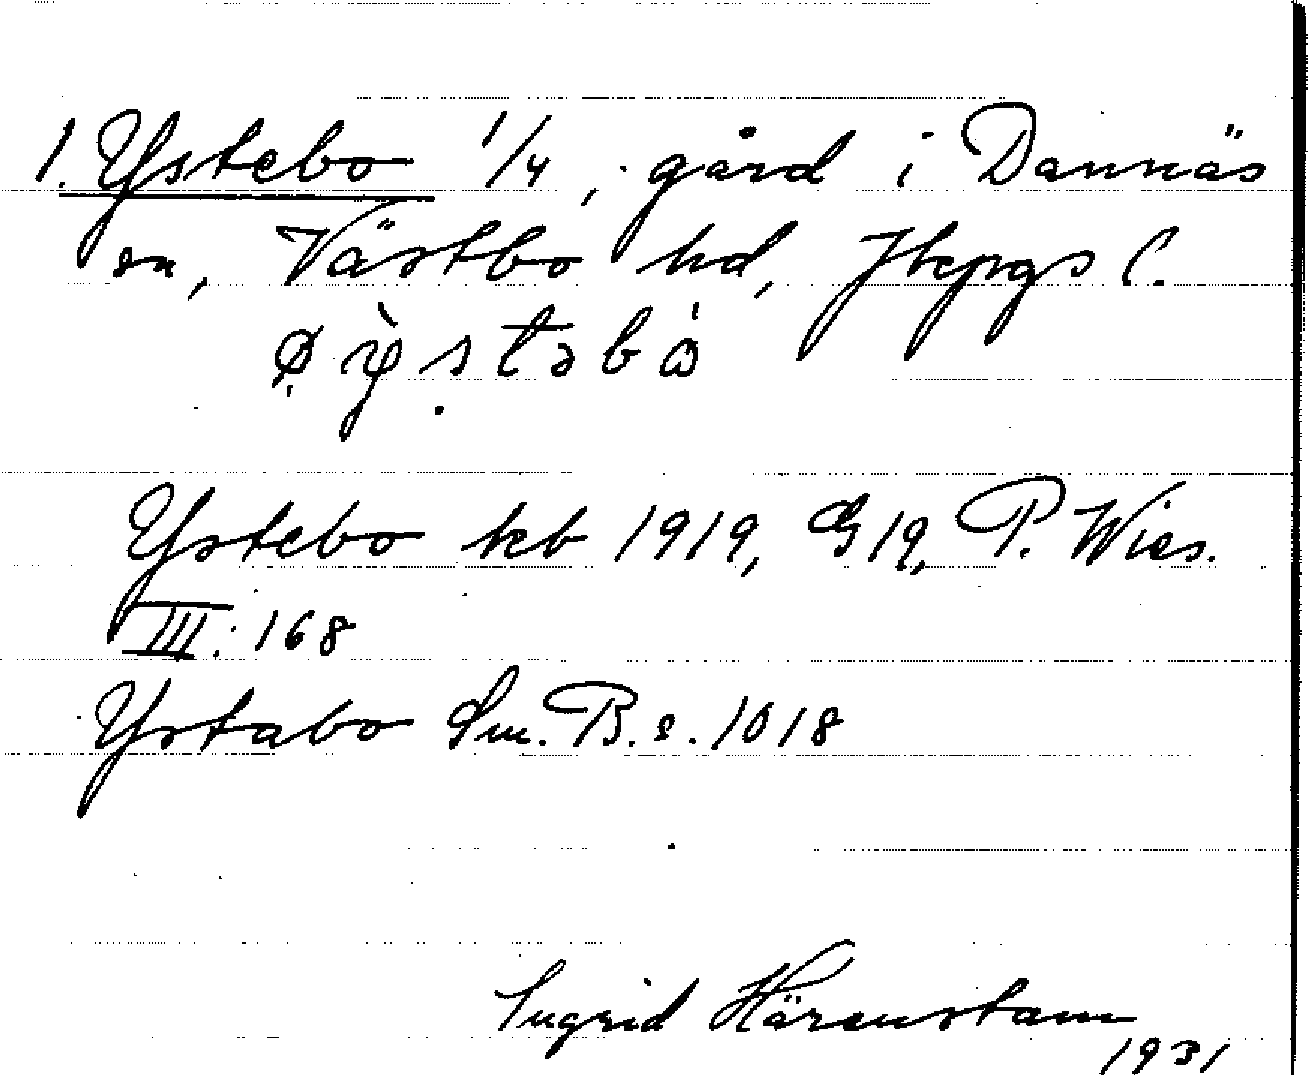 1. Ystebo 1/4, gård i Dannäs
sn, Västbo hd, Jkpgs l.
Ystebo kb 1919, G19, P. Wies.
III: 168
Ystabo Sm. B. s. 1018
Ingrid Härenstam
1931